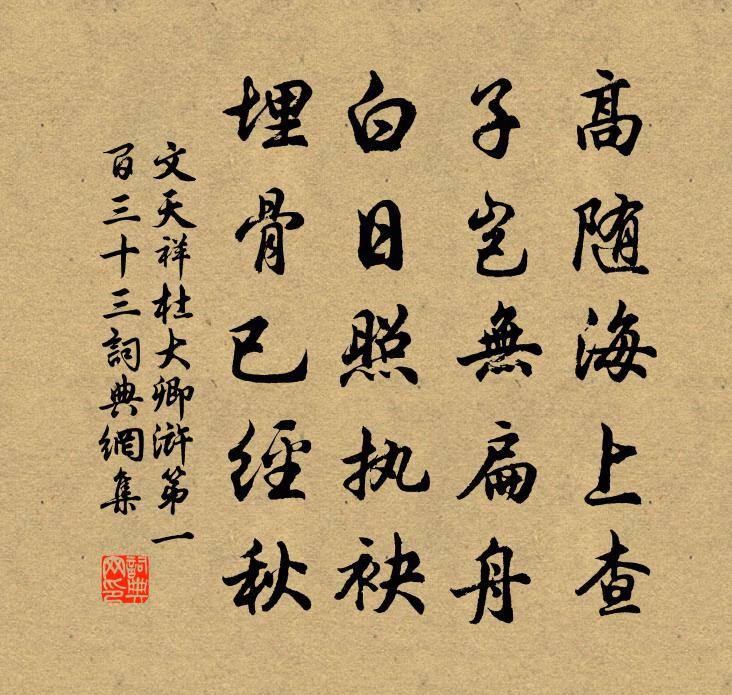 高随海上查
子岂無扁舟
白日照执袂
埋骨已經秋
文天祥杜大卿滸第一
百三十三詞典網集
詞典网印